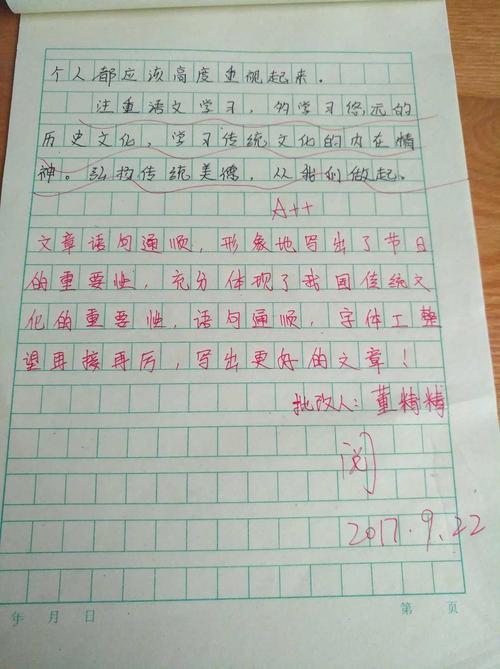 个人都应该高度重视起来。
注重语文学习，的学习悠远的
历史文化，学习传统文化的内在精
神。弘扬传统美德，从我们做起。
A++
文章语句通顺，形象地写出了节日
的重要性，充分体现了我国传统文
化的重要性，语句通顺，字体工整
望再接再厉，写出更好的文章！
批改人：董精精
阅
2017.9.22
年 月 日 第 页